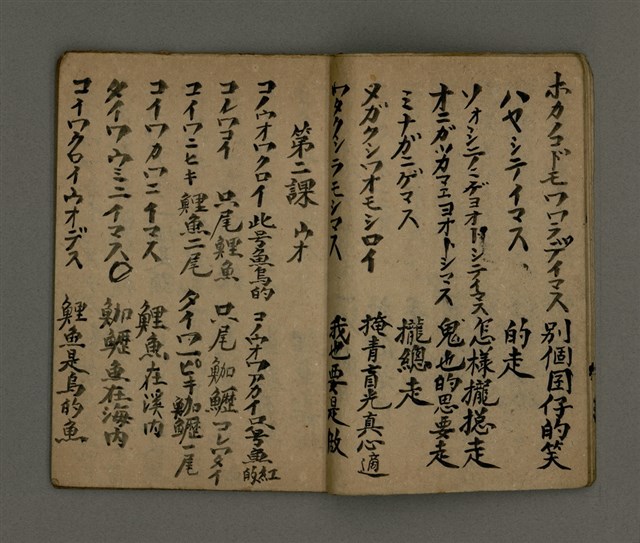 ホカノコドモワワラデイマス 別個囝仔的笑
ハヤシテイマス 的走
ソォシテニゲヨオトシテイマス 怎樣攏摠走
オニガツカマェヨオトシマス 鬼也的思要走
ミナガニゲマス 攏總走
メガクシワオモシロイ 掩青盲光真心適
ワタクシラモシマス 我也要是做
第二課 ウオ
コノウオワクロイ 此号魚烏的 コノウオワアカイ 只号魚紅的
コレワコイ 只尾鯉魚 コレワタイ 只尾鮊魚
コイワニヒキ 鯉魚二尾 タイワ一ピキ 一尾
コイワカワニイマス 鯉魚在溪内
タイワウミニイマス 魚在海内
コイワクロイウオデス 鯉魚是烏的魚